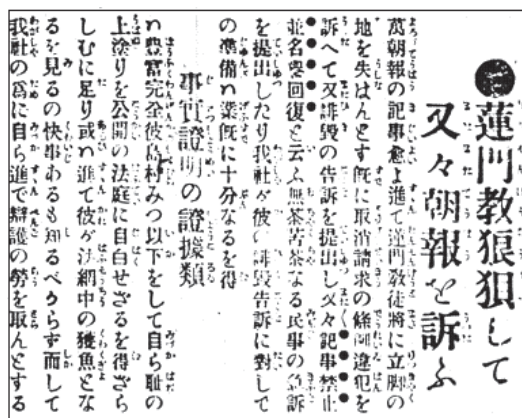 ●蓮門教狼狽して
又々朝報を訴ふ
萬朝報の記事愈よ進て蓮門教徒將に立脚の
地を失はんとす既に取消請求の條例違犯を
訴へて又誹毀の告訴を提出し又々記事禁止
並名譽回復と云ふ無茶苦茶なる民事の急訴
を提出したり我社が彼の誹毀告訴に對して
の準備ハ業既に十分なるを得
事實證明の證據類
ハ豊富完全彼島村みつ以下をして自ら耻の
上塗りを公開の法庭に自白せざるを得ざら
しむに足り或ハ進て彼が法網中の獲魚とな
るを見るの快事あるも知るべからず而して
我社の爲に自ら進で辯護の勞を取んとする